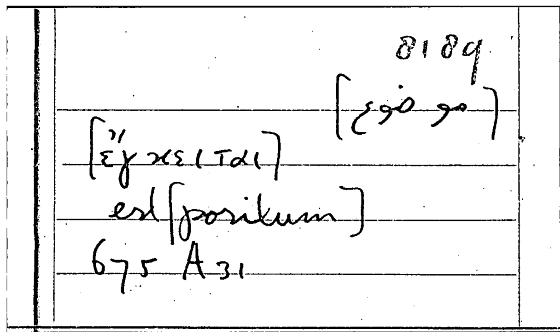 8189
[موضوع]
[ἔγκειται]
est [positum]
675 A 31